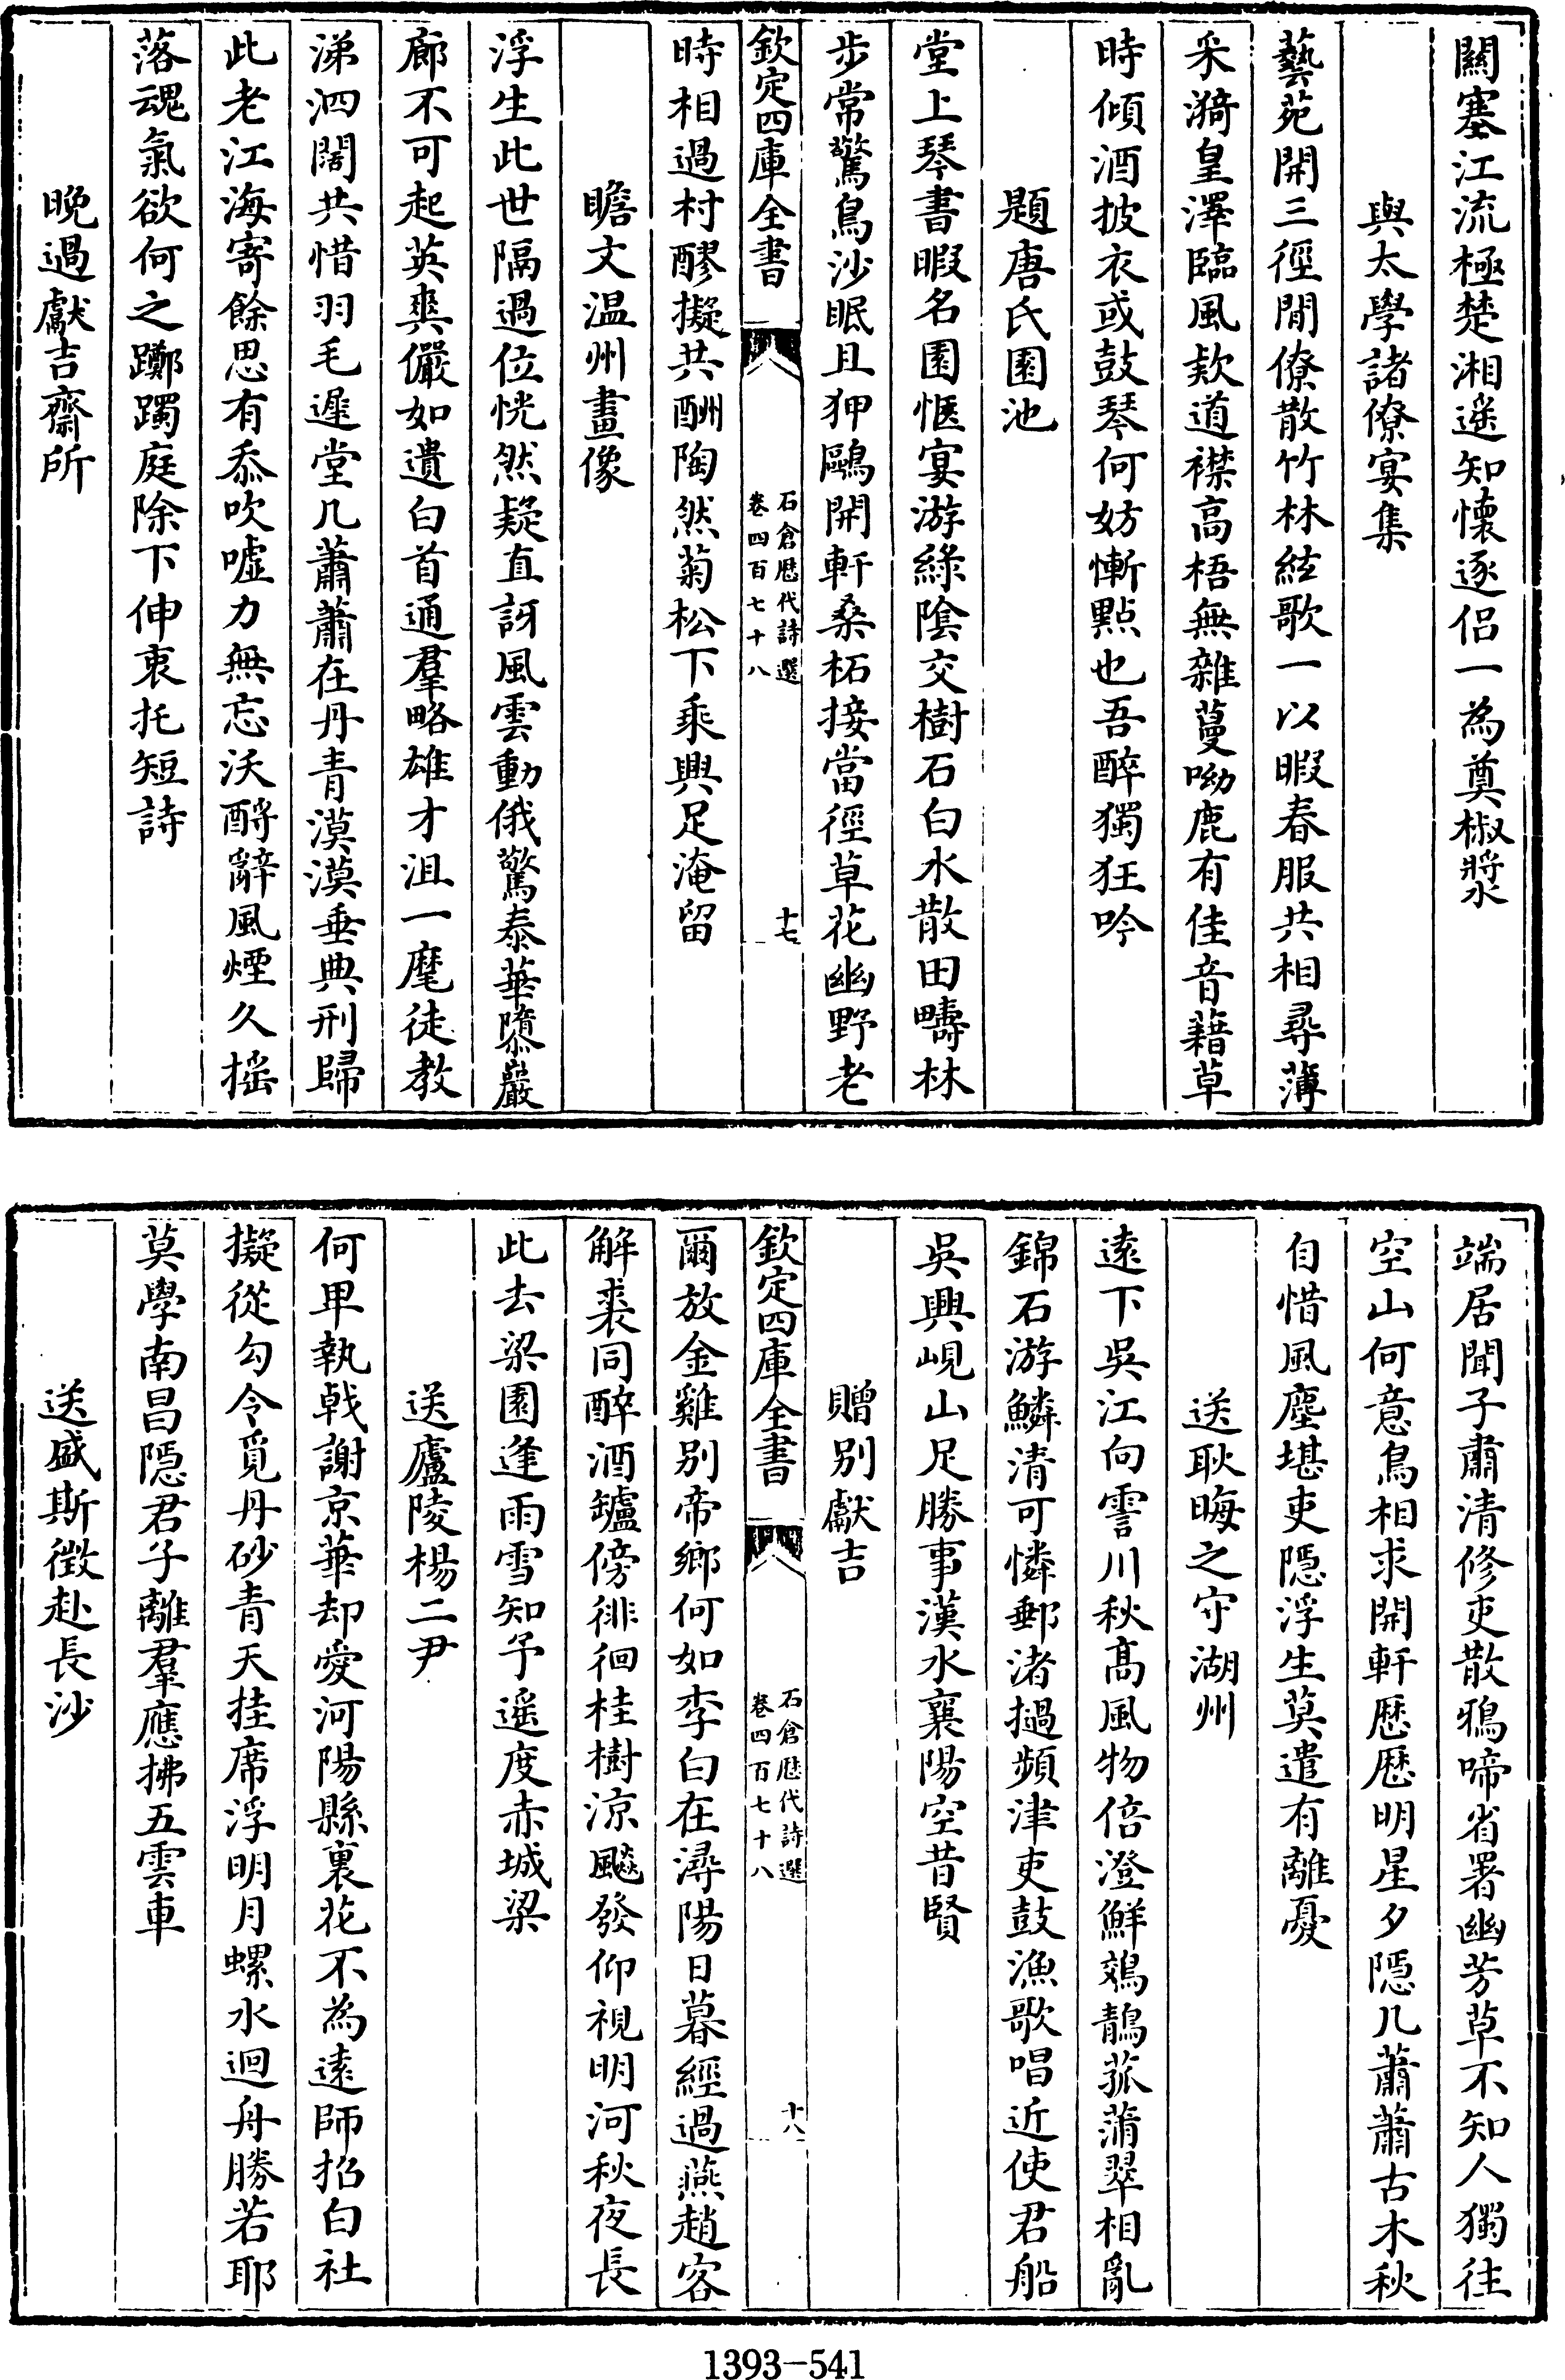 關塞江流極楚湘遥知懷逐侣一為奠椒漿
與太學諸僚宴集
藝苑開三徑閒僚散竹林絃歌一以暇春服共相尋薄
采漪皇澤臨風欵道襟高梧無雜蔓呦鹿有佳音藉草
時傾酒披衣或鼓琴何妨慚點也吾醉獨狂吟
題唐氏園池
堂上琴書暇名園愜宴游緑陰交樹石白水散田疇林
步常驚鳥沙眠且狎鷗開軒桑柘接當徑草花幽野老
欽定四庫全書
石倉歴代詩選
卷四百七十八
十七
時相過村醪擬共酬陶然菊松下乘興足淹留
瞻文温州畫像
浮生此世隔過位恍然疑直訝風雲動俄驚泰華隳巖
廊不可起英爽儼如遺白首通羣略雄才沮一麾徒教
涕泗闊共惜羽毛遲堂几蕭蕭在丹青漠漠垂典刑歸
此老江海寄餘思有忝吹噓力無忘沃酹辭風煙久揺
落魂氣欲何之躑躅庭除下伸衷托短詩
晚過獻吉齋所
端居聞子肅清修吏散鴉啼省署幽芳草不知人獨往
空山何意鳥相求開軒歴歴明星夕隠几蕭蕭古木秋
自惜風塵堪吏隠浮生莫遣有離憂
送耿晦之守湖州
遠下吳江向霅川秋髙風物倍澄鮮鵁鶄菰蒲翠相亂
錦石游鱗清可憐郵渚撾頻津吏鼓漁歌唱近使君船
吳興峴山足勝事漢水襄陽空昔賢
贈别獻吉
欽定四庫全書
石倉歴代詩選
卷四百七十八
十八
爾放金雞别帝鄉何如李白在潯陽日暮經過燕趙客
解裘同醉酒罏傍徘徊桂樹涼飈發仰視明河秋夜長
此去梁園逢雨雪知予遥度赤城梁
送廬陵楊二尹
何甲執戟謝京華却愛河陽縣裏花不為遠師招白社
擬從勾令覓丹砂青天挂席浮明月螺水迴舟勝若耶
莫學南昌隠君子離羣應拂五雲車
送盛斯徴赴長沙
1393-541